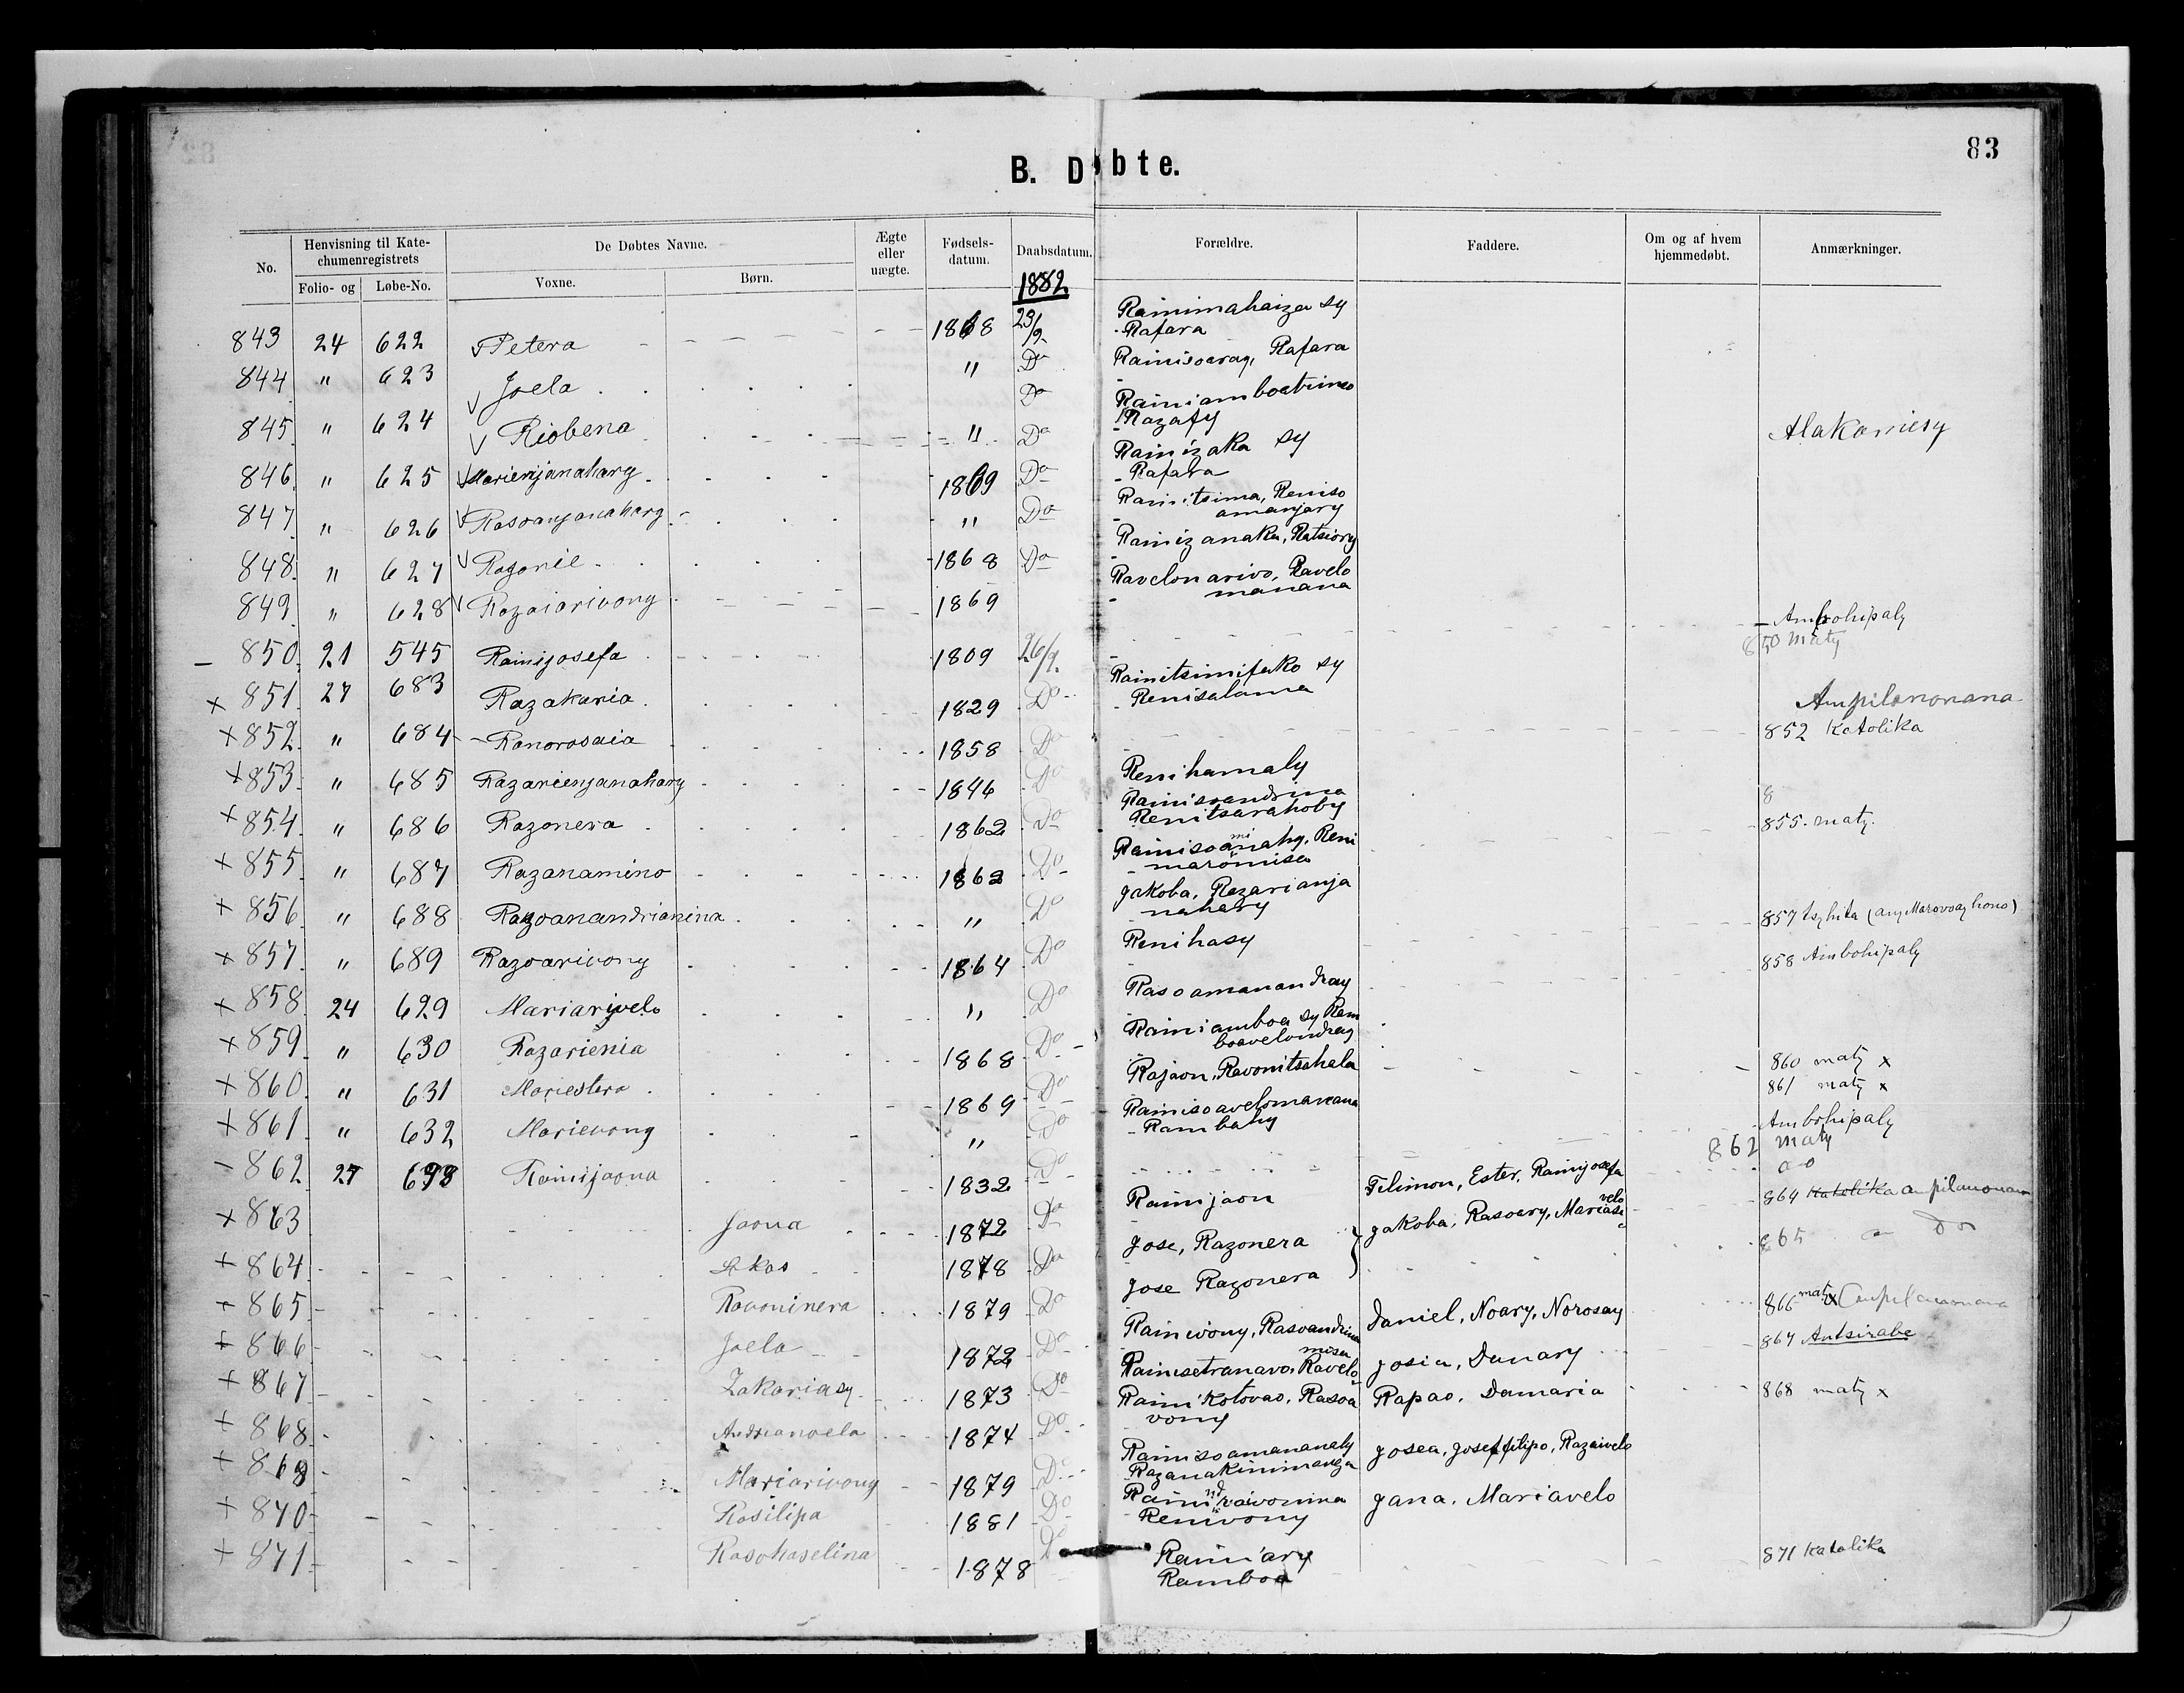 83
B. Døbte.
No. Henvisning til Katechumenregistrets Folio- og Løbe-No. De Døbtes Navne. Voxne. Børn. Ægte eller uægte. Fødselsdatum. Daabsdatum. Forældre. Faddere. Om og af hvem hjemmedøbt. Anmærkninger.
1882
843 24 622 Petera 1868 29/9 Rainimahaiza sy Rafara
844 " 623 Joela " Do Rainisoaray, Rafara
845 " 624 Riobena " Do Rainiamboatrimo Razafy Alakamiesy
846 " 625 Marienjanahary 1869 Do Rainizaka sy Rafara
847 " 626 Rasoanjanahary " Do Rainitsima, Reniso amanjary
848 " 627 Razonie 1868 Do Rainizanaka, Ratsiory
849 " 628 Razaiarivony 1869 Ravelonarivo, Ravelo manana
Ambohipaly
850 21 545 Rainijosefa 1809 26/9 850 Maty
851 27 683 Razakaria 1829 Do Rainitsimifako sy Renisalama Ampilanonana
852 " 684 Ranorosaia 1858 Do 852 Katolika
853 " 685 Razarienjanahary 1846 Do Renihamaly
8
854 " 686 Razonera 1862 Do Rainisoandrina Renitsarahoby
855 " 687 Razanamino 1862 Do Rainisoamianahy, Reni maromisa 855. maty.
856 " 688 Razoanandrianina " Do Jakoba, Razarianja nahary
857 " 689 Razoarivony 1864 Do Renihasy 857 tsy hita (any Marovoay hono)
858 24 629 Mariarivelo " Do Rasoamanandray 858 Ambohipaly
859 " 630 Razarienia 1868 Do Rainiamboa sy Reni boavelondray
860 " 631 Mariestera 1869 Do Rajaon, Ravonitsahala 860 maty x
861 " 632 Marievony " Do Rainisoavelomanana Rambahy 861 maty x
Ambohipaly
862 27 693 Rainijaona 1832 Do 862 Maty
do
863 Jaona 1872 Do Rainijaon Filimon, Ester, Rainijosefa
864 Lkas 1878 Do Jose, Razonera Jakoba, Rasoary, Mariasivelo 864 Katolika Ampilanonana
865 Ravoninera 1879 Do Jose Razonera 865 " Do
866 Joela 1872 Do Rainivony, Rasoandrina Daniel, Noary, Norosoay 866 maty x Ampilanonana
867 Zakariasy 1873 Do Rainisetranavo, Ravelo misa Josia, Danary 867 Antsirabe
868 Andrianoela 1874 Do Rainikotovao, Rasoa vony Rapao, Damaria 868 maty x
869 Mariarivony 1879 Do Rainisoamananaly Razanakinimanga Josea, Joseffilipo, Razaivelo
870 Rosilipa 1881 Do Raini nd raivonina Renivony Jana, Mariavelo
871 Rasohaselina 1878 Do Rainiary Ramboa 871 Katolika